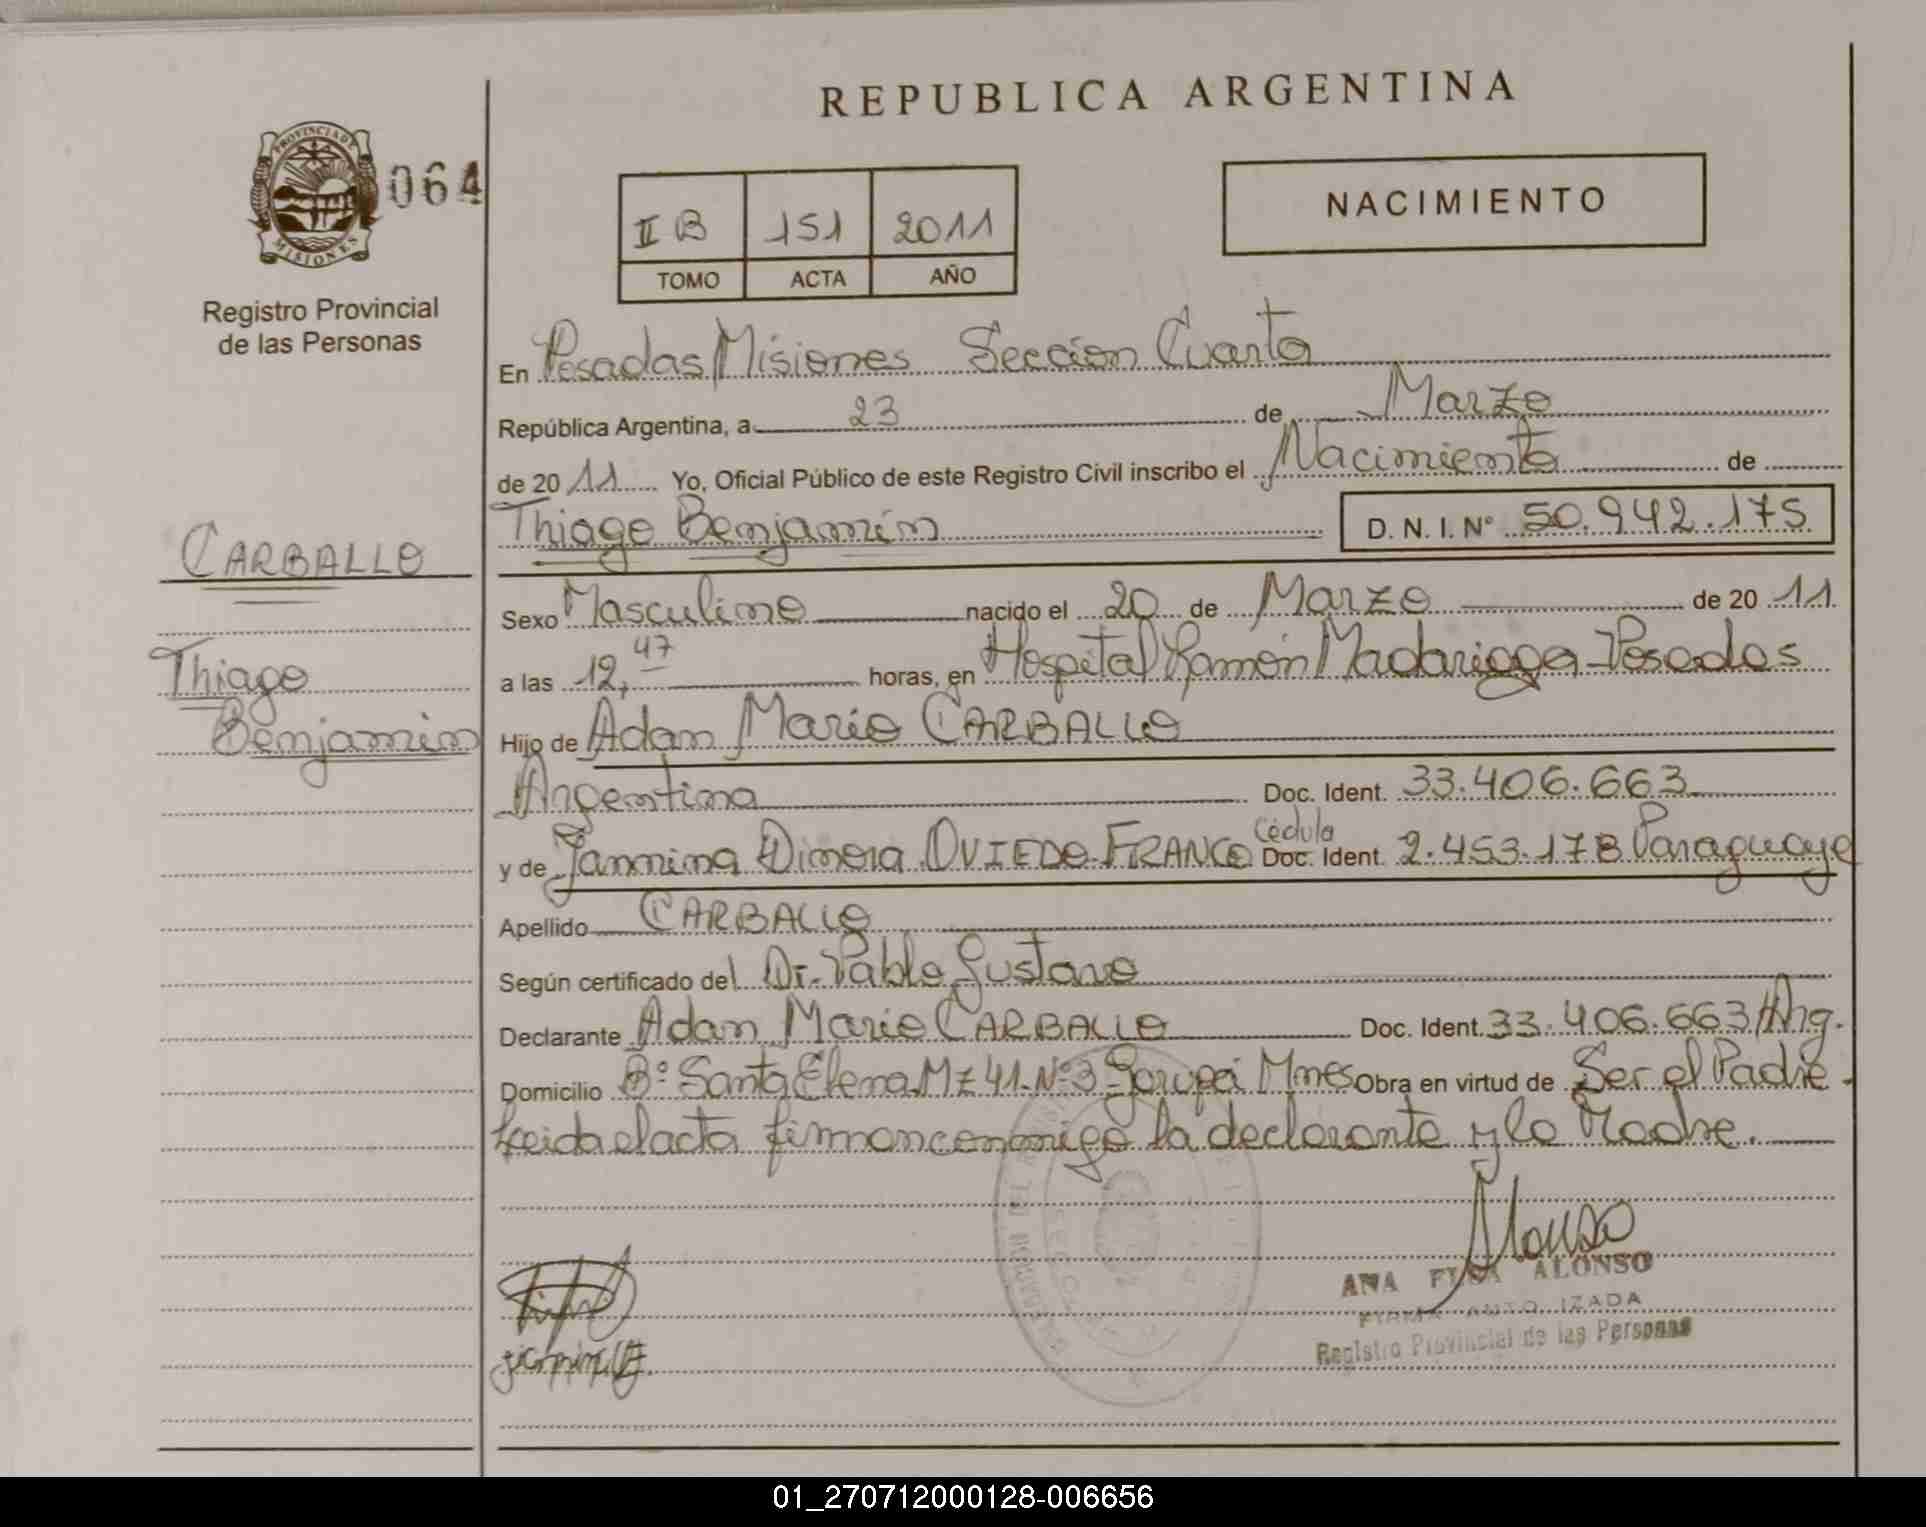 REPUBLICA ARGENTINA
PROVINCIA DE MISIONES
064
Registro Provincial
de las Personas
II B 151 2011
TOMO ACTA AÑO
NACIMIENTO
En Posadas Misiones Sección Cuarta
República Argentina, a 23 de Marzo
de 2011 Yo, Oficial Público de este Registro Civil inscribo el Nacimiento de
Thiago Benjamín D. N. I. N° 50.942.175
CARBALLO
Thiago
Benjamín
Sexo Masculino nacido el 20 de Marzo de 2011
a las 12,47 horas, en Hospital Ramón Madariaga-Posadas
Hijo de Adan Mario CARBALLO
Argentina Doc. Ident. 33.406.663
y de Jannina Dinora OVIEDO FRANCO Cédula Doc. Ident. 2.453.178 Paraguaya
Apellido CARBALLO
Según certificado del Dr. Pablo Gustavo
Declarante Adan Mario CARBALLO Doc. Ident. 33.406.663 Arg.
Domicilio B° Santa Elena Mz 41-N°3-Garupá Mnes Obra en virtud de Ser el Padre.
Leida el acta firman conmigo la declarante y la Madre.
Alonso
ANA ALONSO
FIRMA AUTORIZADA
Registro Provincial de las Personas
01_270712000128-006656